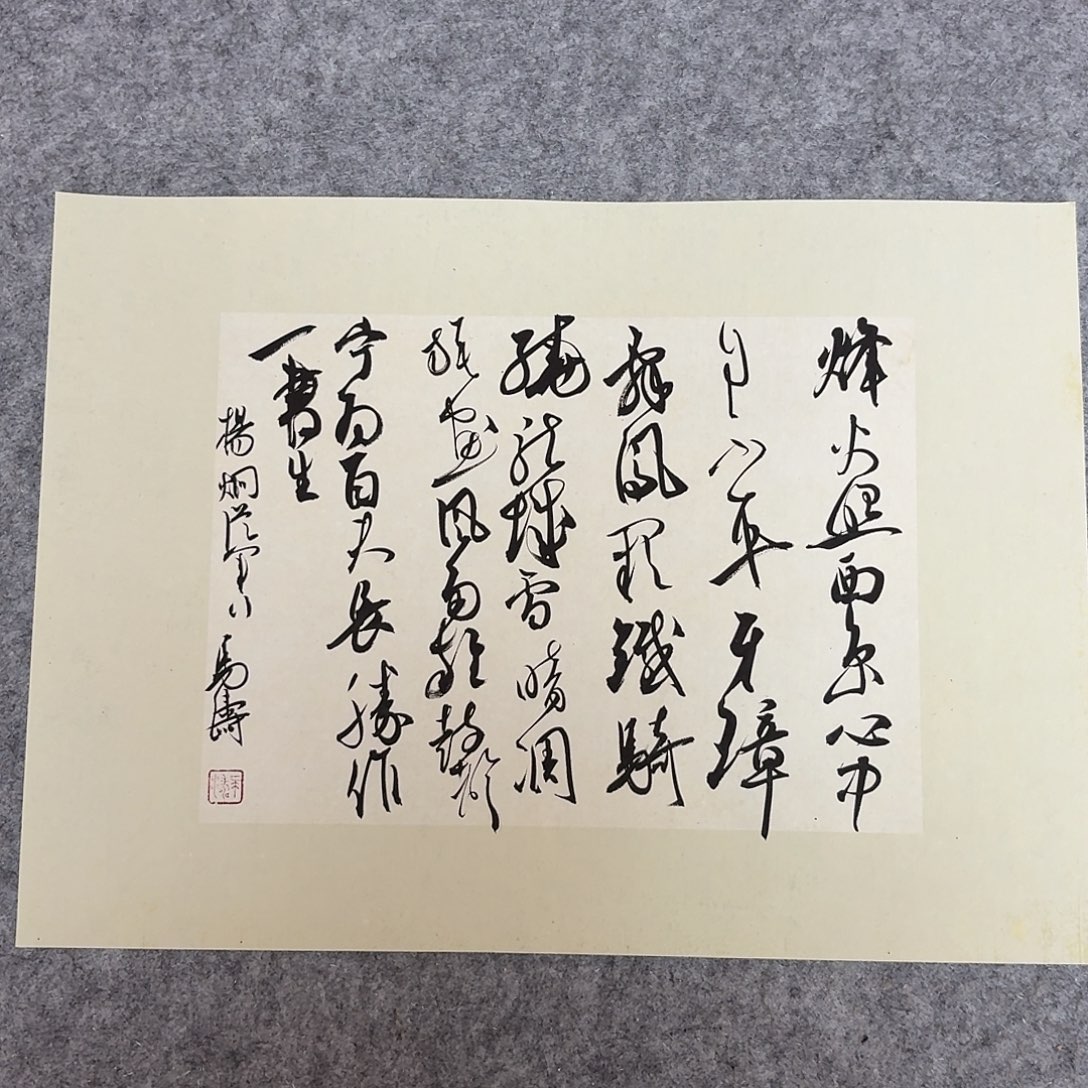 烽火照西京心中
自不平牙璋
辞鳳闕鐵騎
繞龍城雪暗凋
旗畫風多雜鼓聲
寧為百夫長勝作
一書生
楊炯從軍行 馬濤